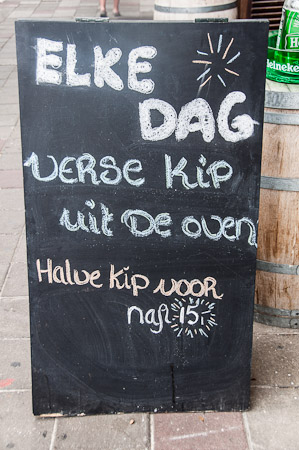 ELKE
DAG
VERSE KIP
uit DE oven
Halve kip voor
nafl 15,
Heineken